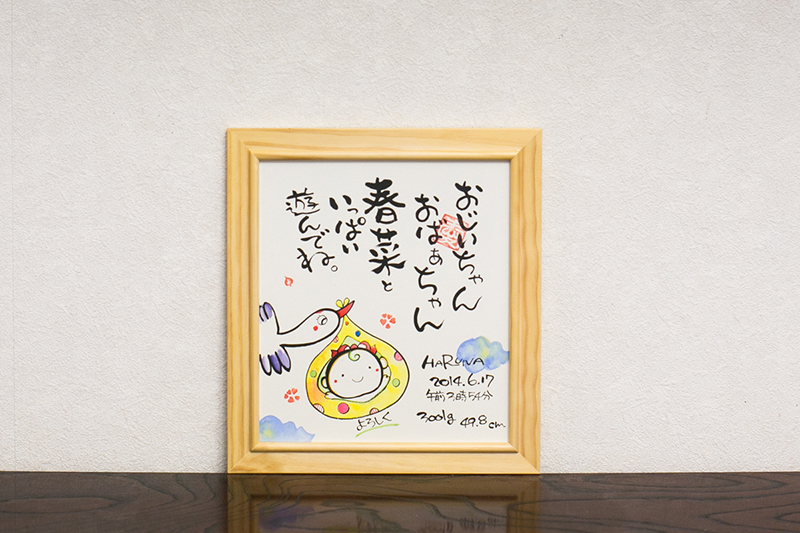 おじいちゃん
おばぁちゃん
春菜と
いっぱい
遊んでね。
HARUNA
2014.6.17
午前2時54分
3001g 49.8cm
よろしく